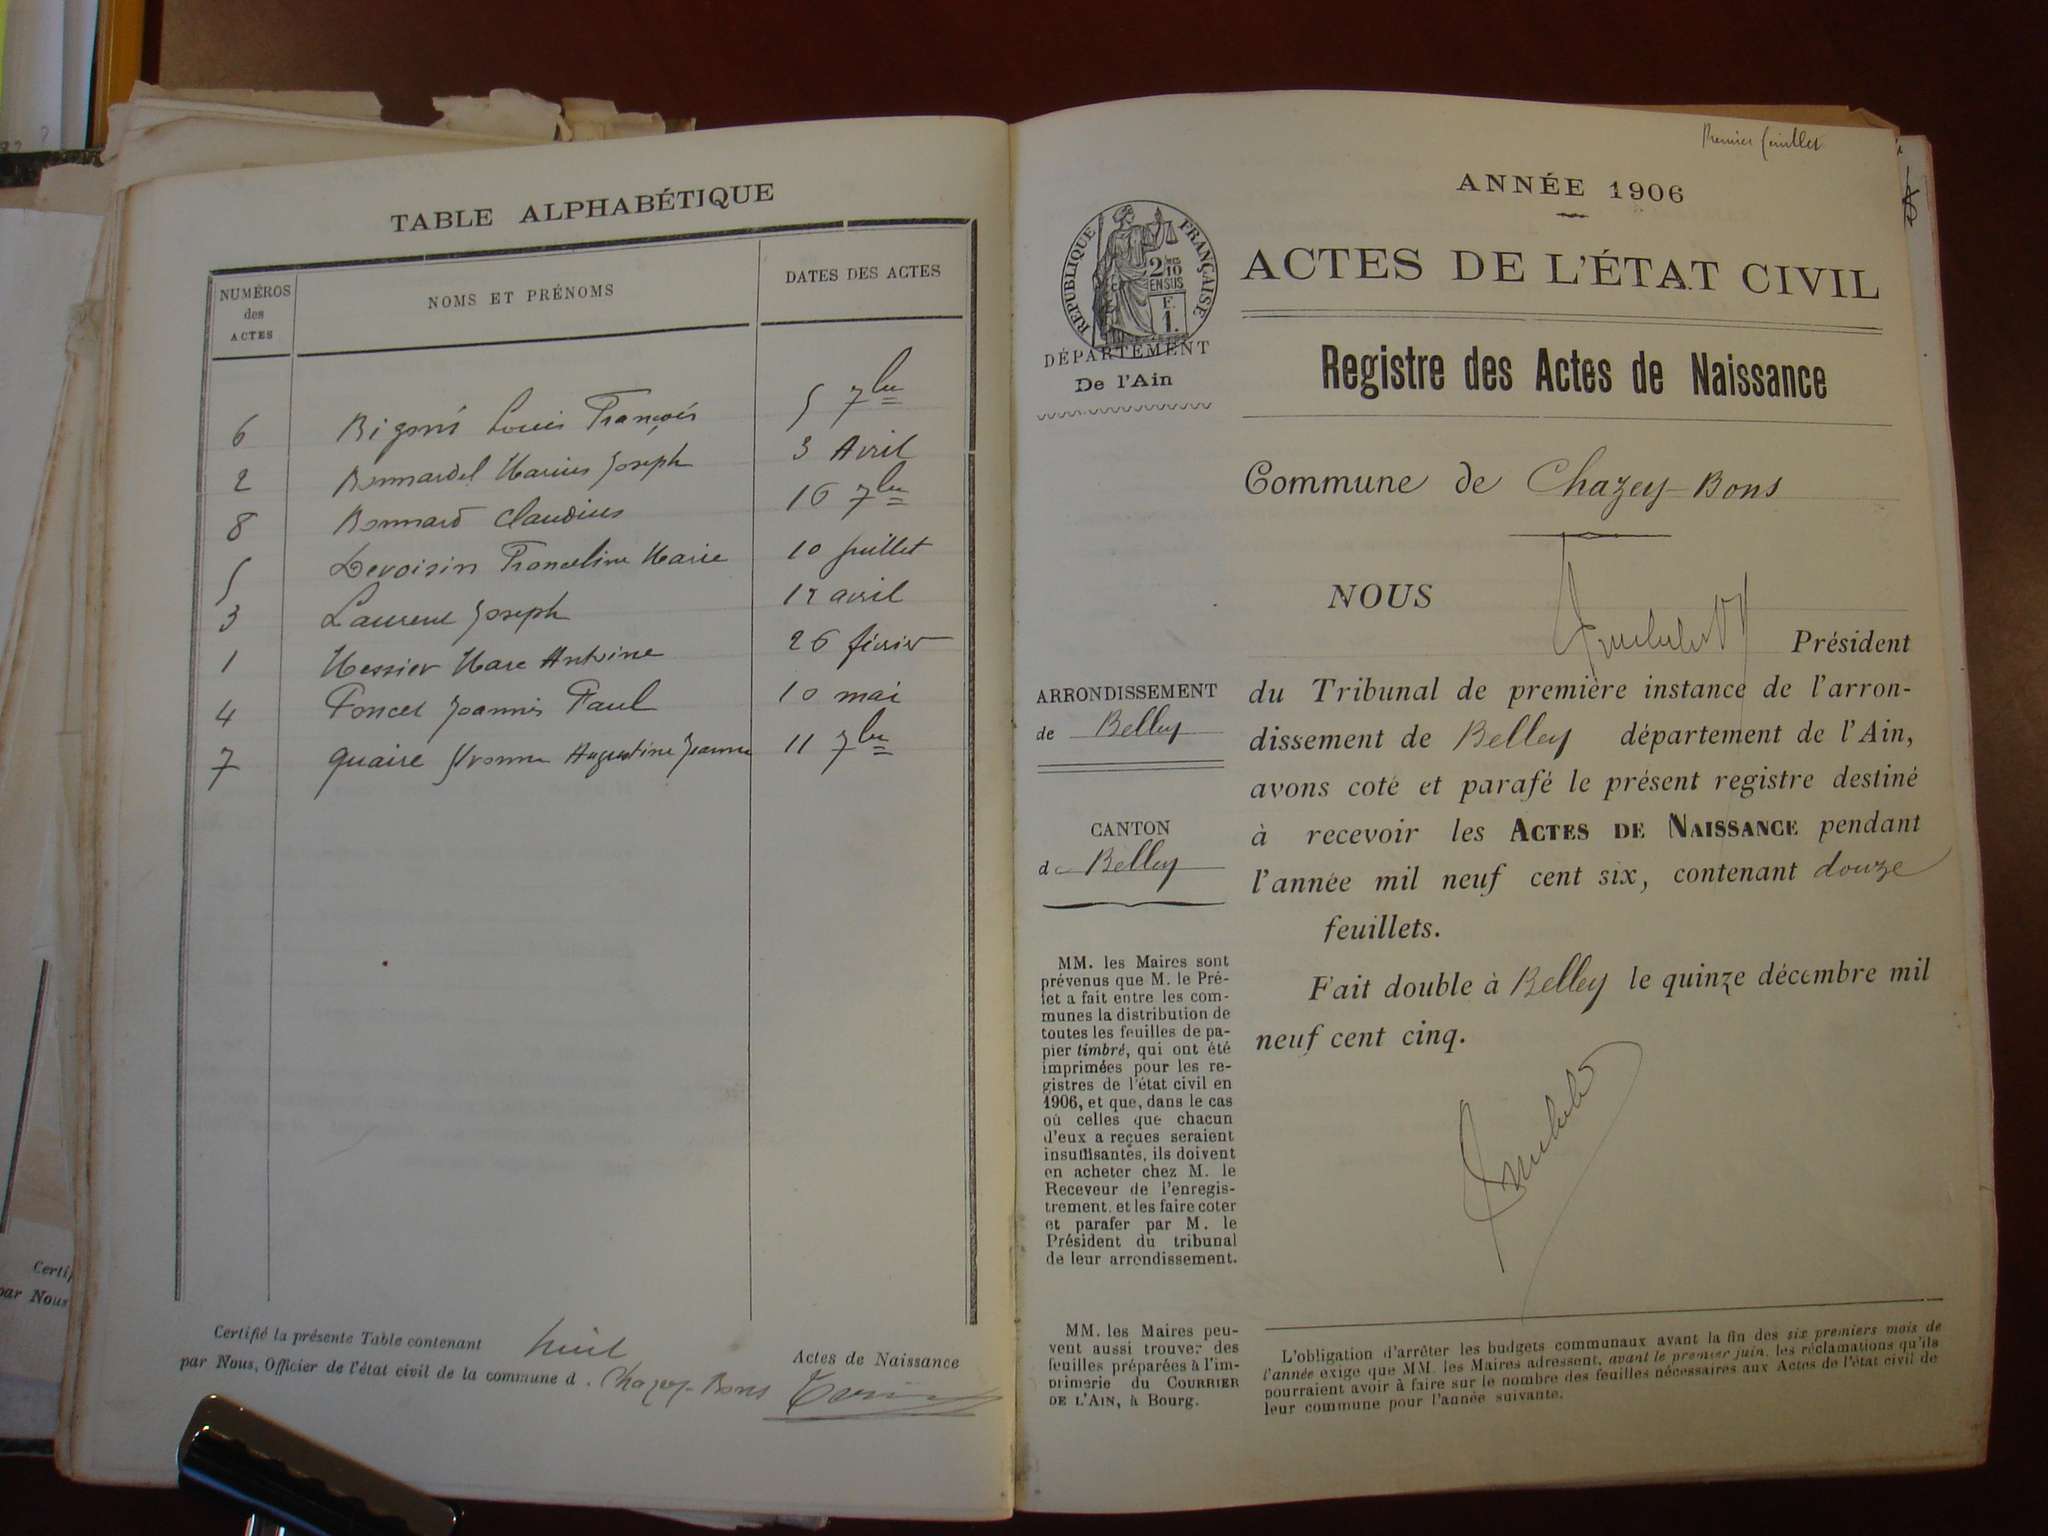 TABLE ALPHABÉTIQUE
NUMÉROS des ACTES
NOMS ET PRÉNOMS
DATES DES ACTES
6 Louis François 5 7bre
2 Bonnardel Marius Joseph 3 Avril
8 Bonnard Claudius 16 7bre
5 Devoisin Franceline Marie 10 Juillet
3 Laurent Joseph avril
1 Messier Marc Antoine 26 février
4 Poncet Joannès Paul 10 mai
7 Quaire Yvonne Augustine Jeanne 11 7bre
Certifié la présente Table contenant huit Actes de Naissance
par Nous, Officier de l'état civil de la commune d. Chazey-Bons
Certif
par Nous
Premier feuillet
ANNÉE 1906
RÉPUBLIQUE FRANÇAISE
2/10
EN SUS
F.
1.
ACTES DE L'ÉTAT CIVIL
DÉPARTEMENT
De l'Ain
Registre des Actes de Naissance
Commune de Chazey-Bons
NOUS
Président
ARRONDISSEMENT
de Belley
du Tribunal de première instance de l'arron-
dissement de Belley département de l'Ain,
avons coté et parafé le présent registre destiné
à recevoir les ACTES DE NAISSANCE pendant
l'année mil neuf cent six, contenant douze
feuillets.
CANTON
de Belley
Fait double à Belley le quinze décembre mil
neuf cent cinq.
MM. les Maires sont
prévenus que M. le Pré-
fet a fait entre les com-
munes la distribution de
toutes les feuilles de pa-
pier timbré, qui ont été
imprimées pour les re-
gistres de l'état civil en
1906, et que, dans le cas
où celles que chacun
d'eux a reçues seraient
insuffisantes, ils doivent
en acheter chez M. le
Receveur de l'enregis-
trement. et les faire coter
et parafer par M. le
Président du tribunal
de leur arrondissement.
MM. les Maires peu-
vent aussi trouver des
feuilles préparées à l'im-
primerie du COURRIER
DE L'AIN, à Bourg.
L'obligation d'arrêter les budgets communaux avant la fin des six premiers mois de
l'année exige que MM. les Maires adressent, avant le premier juin, les réclamations qu'ils
pourraient avoir à faire sur le nombre des feuilles nécessaires aux Actes de l'état civil de
leur commune pour l'année suivante.